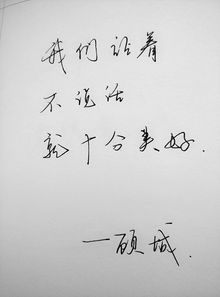 我们站着
不说话
就十分美好.
一顾城.